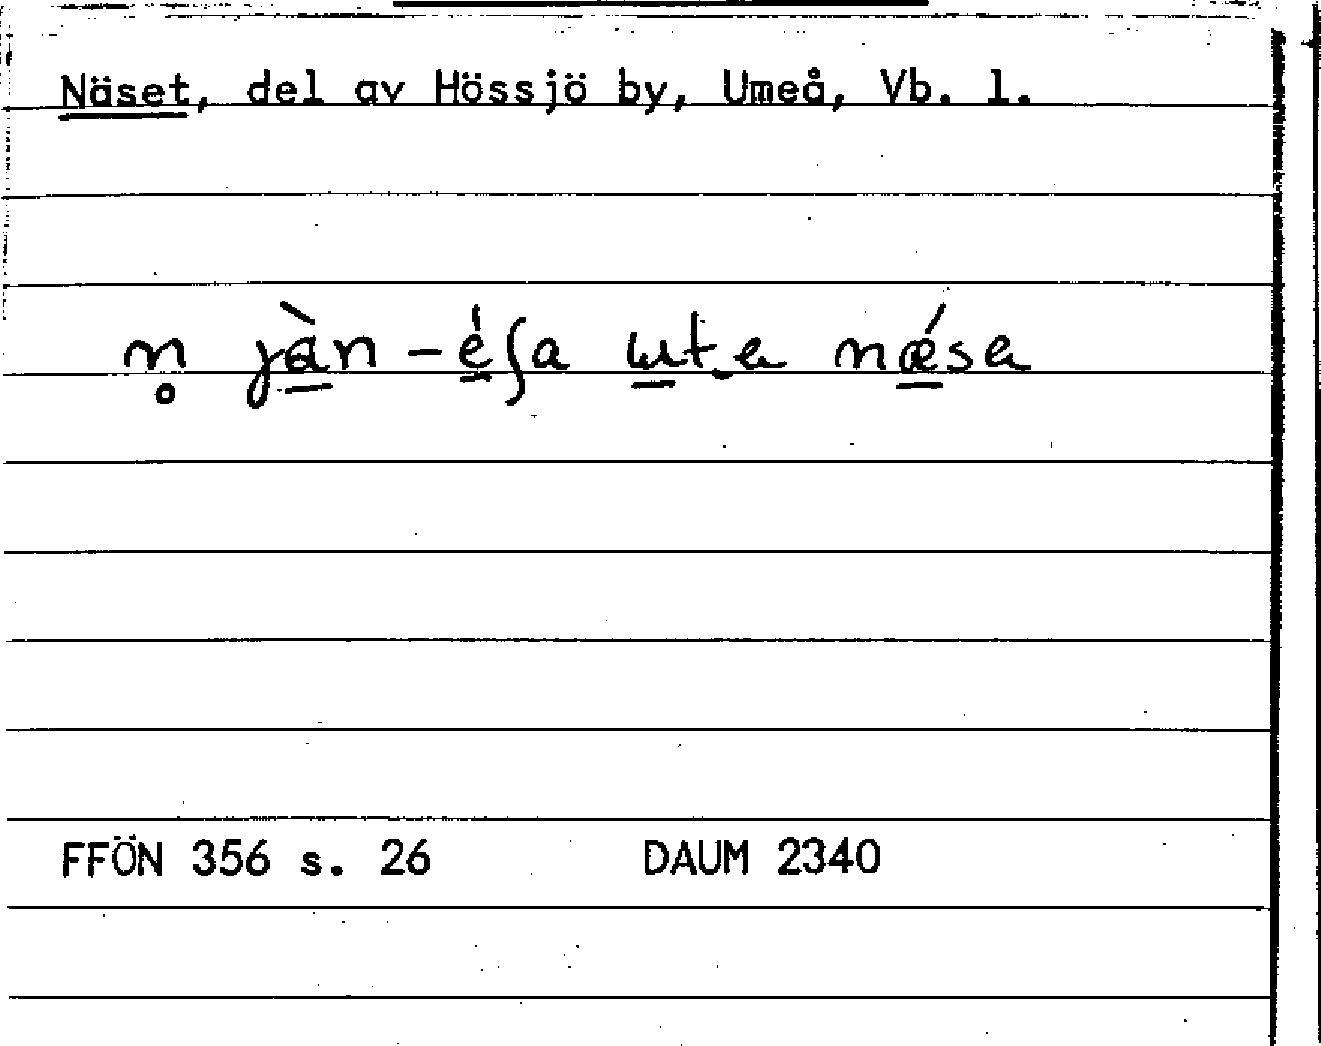 Näset, del av Hössjö by, Umeå, Vb. l.
n̥ jà̱n-é̱ʃa ɯ̱t.a nǽ̱sa
FFÖN 356 s. 26 DAUM 2340